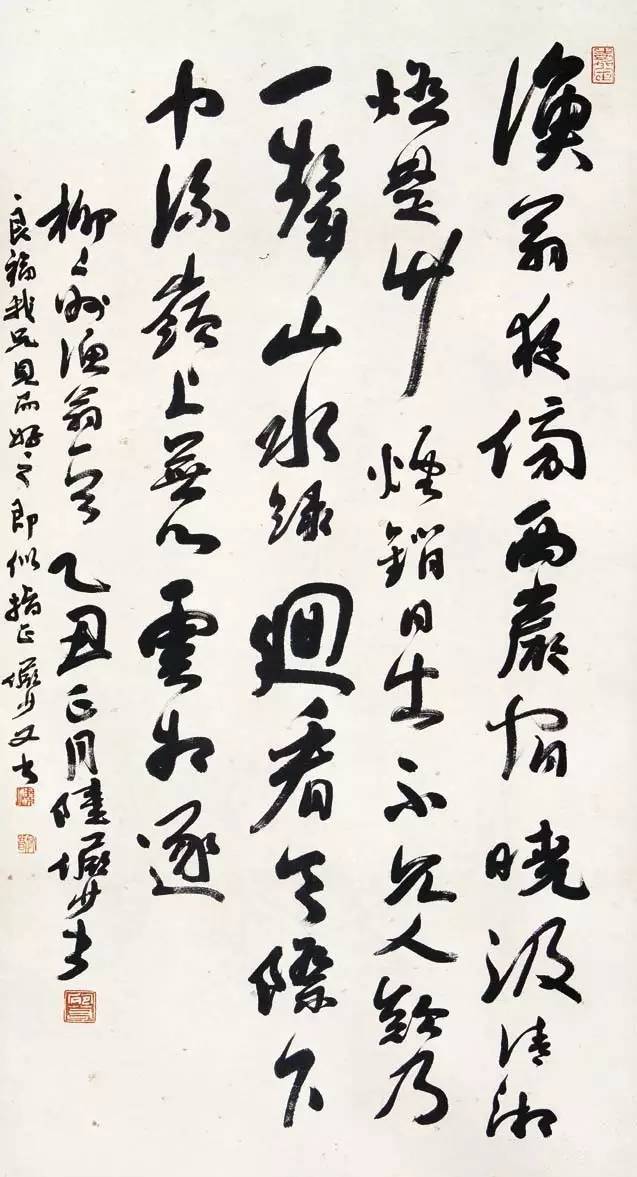 漁翁夜傍西巖宿曉汲清湘
燃楚竹煙銷日出不見人欸乃
一聲山水綠迴看天際下
中流巖上無心雲相逐
柳々州漁翁一首乙丑正月陸儼少書
良鏞我兄見而好之即似指正儼少又書